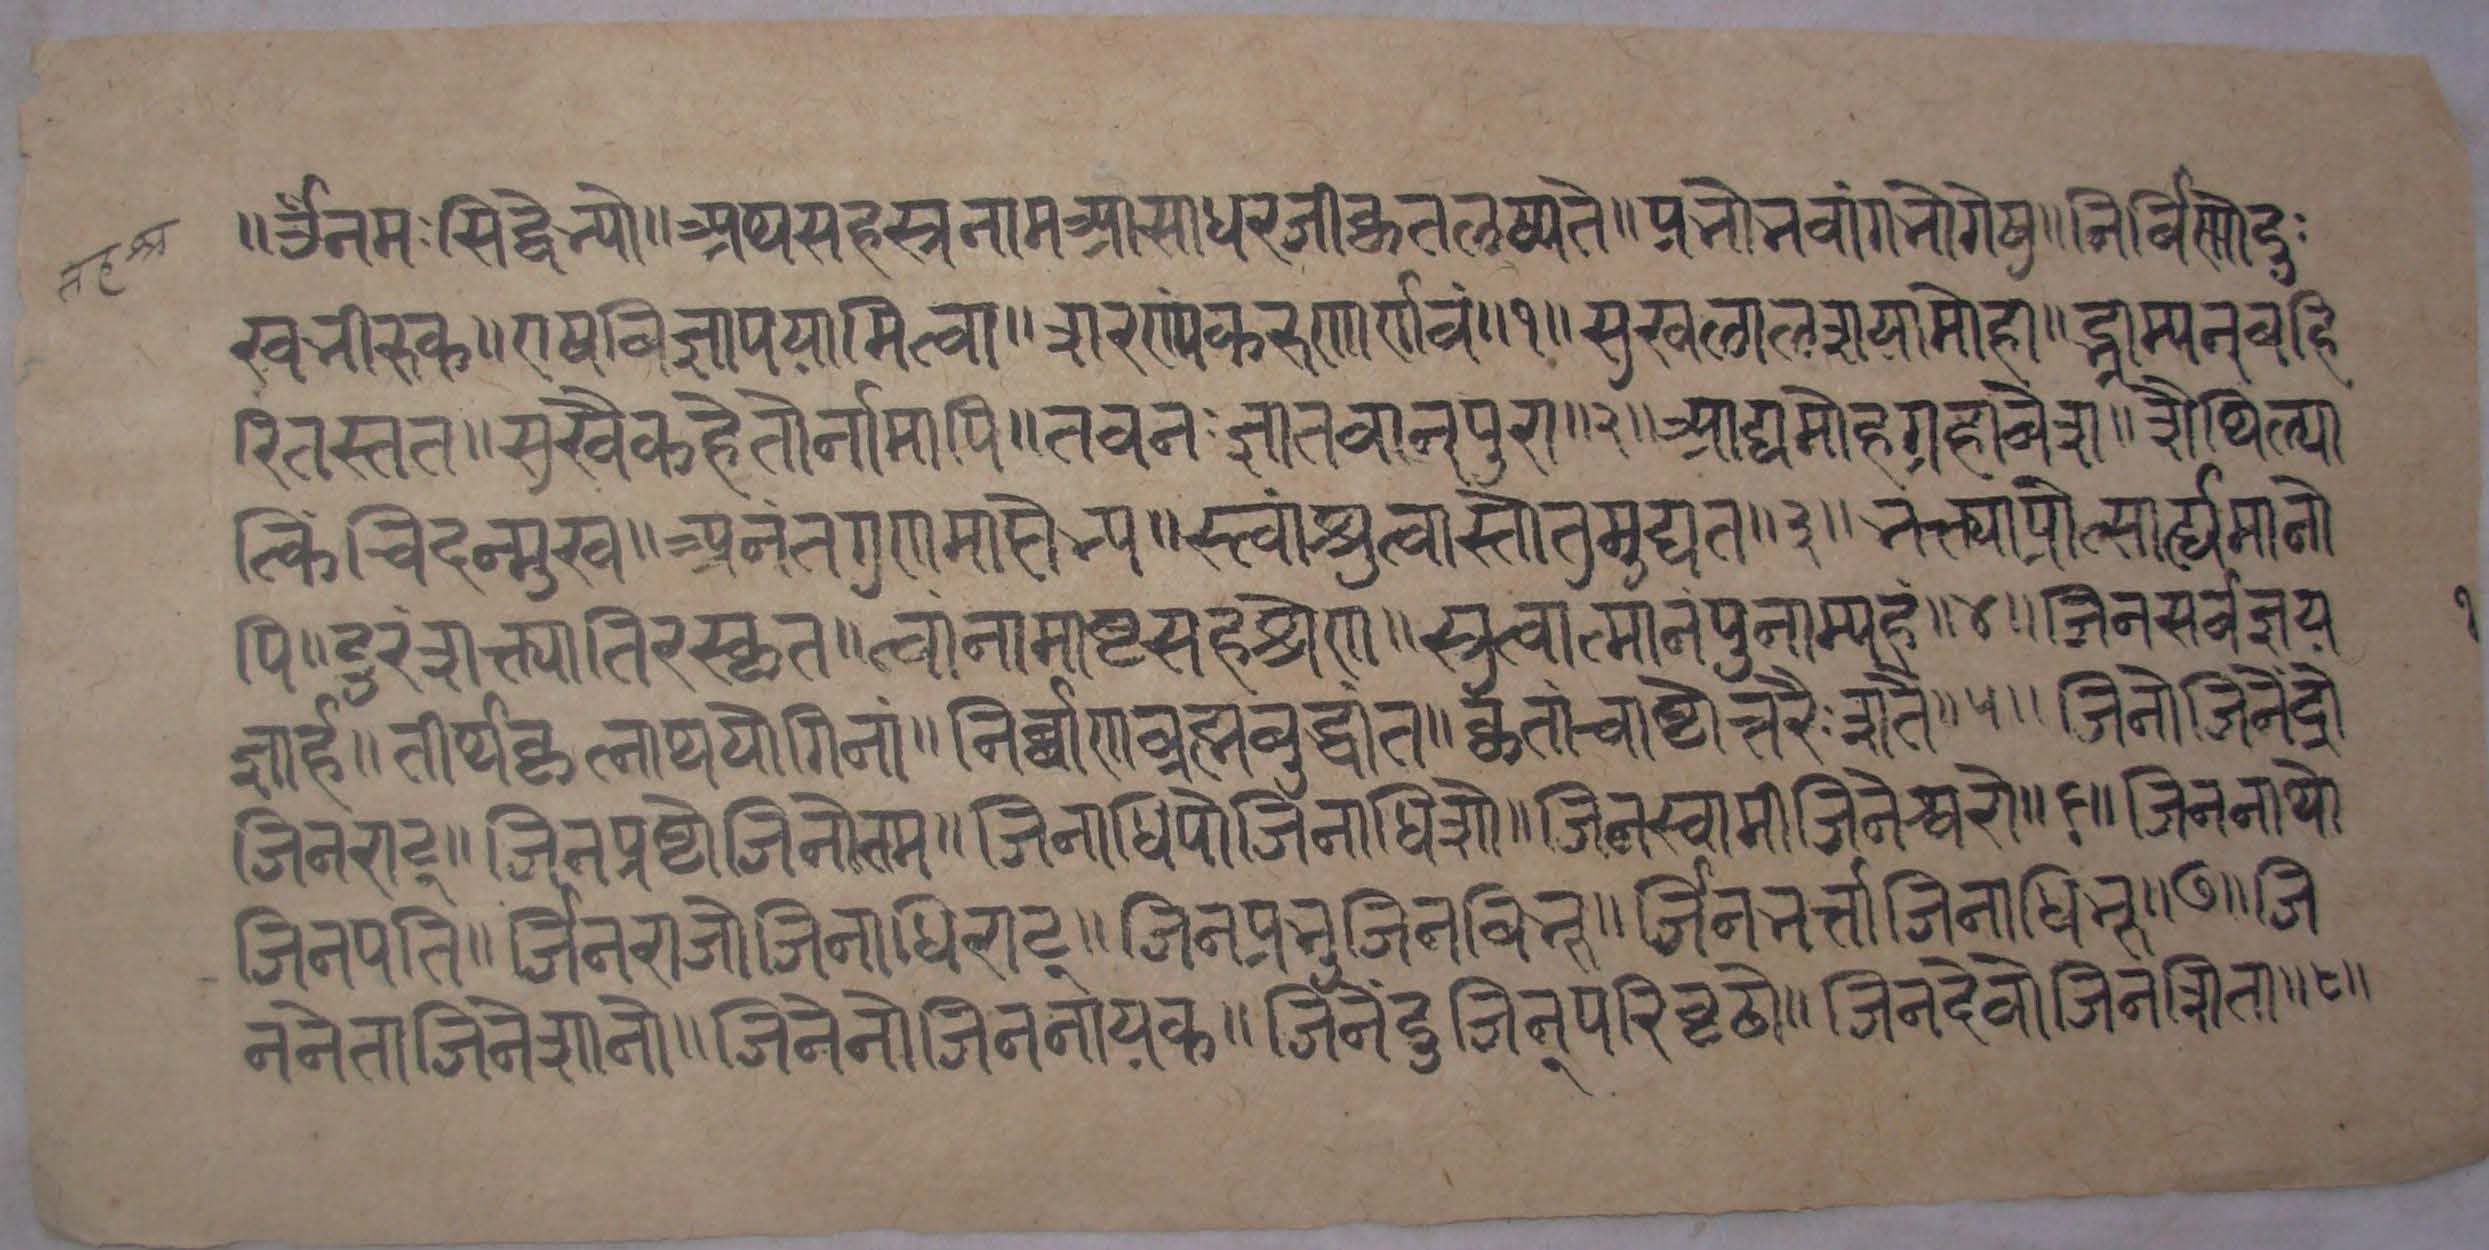 सहश्र
॥ॐनमःसिद्धेभ्यो॥अथसहस्त्रनामआसाधरजीकृतलष्यते॥प्रभोभवांगभोगेषु॥निर्विणोदुः
खभीरुक॥एषविज्ञापयामित्वा॥शरणंपंकरुणार्णवं॥१॥सुखलालशयामोहा॥द्भ्राम्यन्वहि
रितस्तत॥सुखैकहेतोर्नामापि॥तवनःज्ञातवान्पुरा॥२॥आद्यमोहग्रहावेश॥शैथिल्या
त्किंचिदन्मुख॥अनंतगुणमाप्तेभ्य॥स्त्वांश्रुत्वास्तोतुमुद्यत॥३॥भक्त्याप्रोत्सार्द्यमानो
पि॥दुरंशक्त्यातिरस्कृत॥त्वांनामाष्टसहश्रेण॥स्तुत्वात्मानंपुनाम्यहं॥४॥जिनसर्वज्ञय
ज्ञार्ह॥तीर्थकृत्नाथयोगिनां॥निर्व्वाणब्रह्मबुद्धांत॥कृतांचाष्टोत्तरैःशतै॥५॥जिनोजिनेंद्रो
जिनराट्॥जिनप्रष्टोजिनोतम॥जिनाधिपोजिनाधिशो॥जिनस्वामीजिनेश्वरो॥६॥जिननाथो
जिनपति॥र्जिनराजोजिनाधिराट्॥जिनप्रभुजिनविभू॥र्जिनभर्त्ताजिनाधिभू॥७॥जि
ननेताजिनेशानो॥जिनेनोजिननायक॥जिनेंदुजिन्परिवृढो॥जिनदेवोजिनशिता॥८॥
१